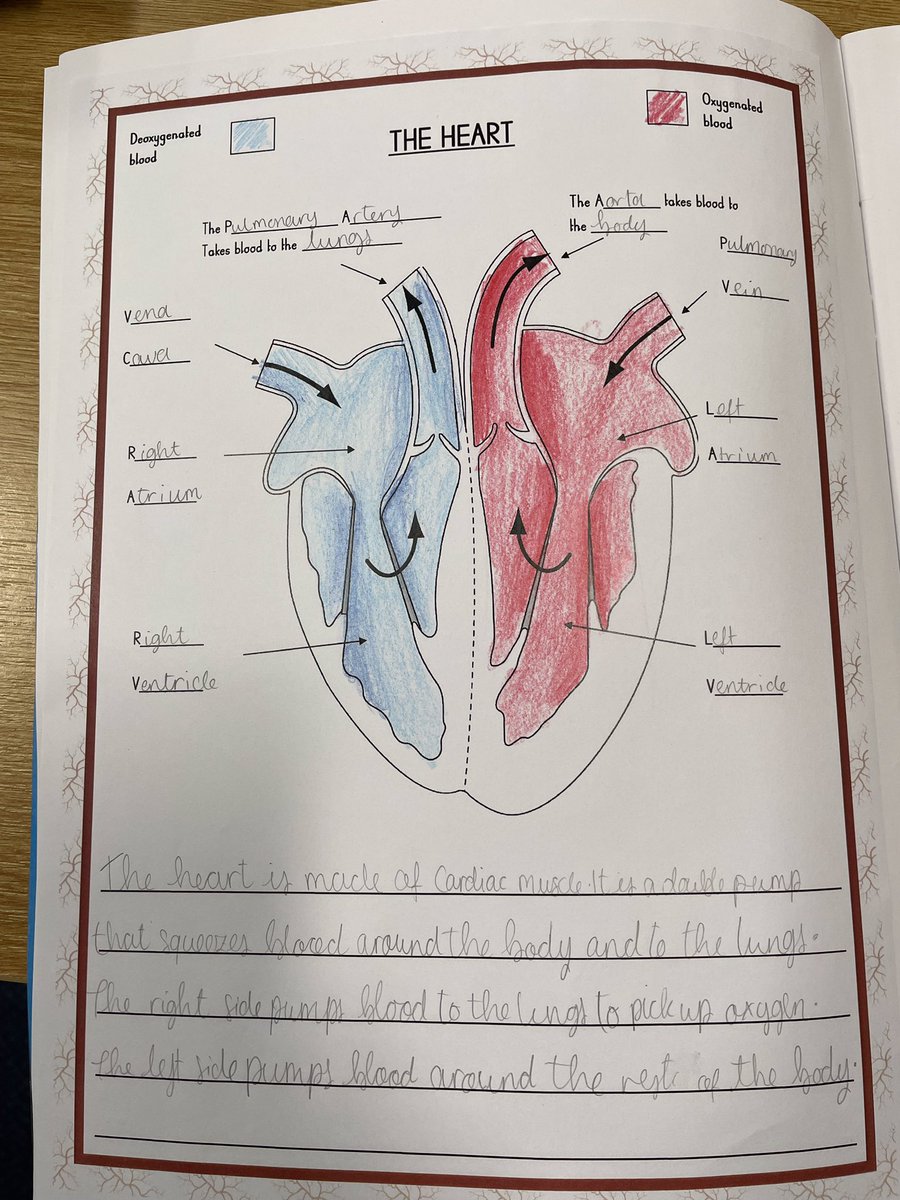 Deoxygenated
blood
Oxygenated
blood
THE HEART
The Pulmonary Artery
Takes blood to the lungs
The Aorta takes blood to
the body
Pulmonary
Vein
Vena
Cava
Right
Atrium
Left
Atrium
Right
Ventricle
Left
Ventricle
The heart is made of Cardiac Muscle. It is a double pump
that squeezes blood around the body and to the lungs.
The right side pumps blood to the lungs to pick up oxygen.
The left side pumps blood around the rest of the body.